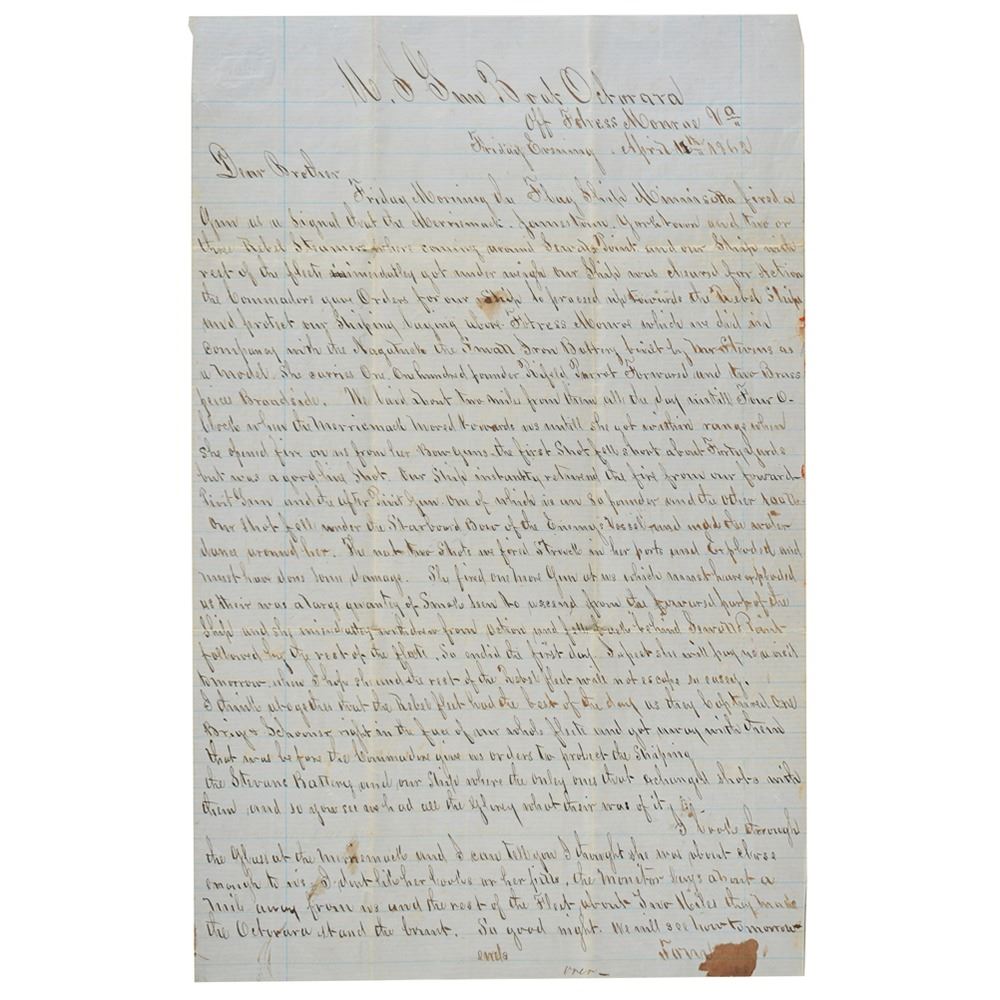 U. S Gun Boat Octorara
Off Fotress Monroe Va
Friday Evening April 11th 1862
Dear Brother
Friday Morning the Flag Ship Minnisotta fired a
Gun as a Signal that the Merrimack. Jamestown Yorktown and two or
three Rebel Steamers where coming around Point and our Ship with
rest of the fleete got under weigh our Ship was cleared for Action
the Commadore gave Orders for our Ship to proceed up towards the Rebel Ships
and protect our Shiping laying above Fotress Monroe which we did in
company with the Nagatuck the Small Iron Battery built by Mr Stevens as
a Model. She carries One. One hundred pounder Rifeld Parrot Forward and two Brass
peice Broadside. We laid about two mile from them all the day untill Four O-
clock when the Merriemack Moved towards us untill she got within range when
she opened fire on us from her Bow Guns. the first Shot fell short about Forty Yards
but was a good line Shot. Our Ship instantly returned the fire from our forward
Pivit Gun and the after Pivit Gun one of which is an 80 pounder and the other
Our Shot fell under the Starboard Bow of the Enemys Vessel and made the water
dance around her. The next two Shots we fired Struck in her ports and Exploded and
must have done some damage. She fired one more Gun at us which must have exploded
as their was a large quantity of Smoke seen to assend from the forward part of the
Ship and she withdrew from Action and fell back behind Point
followed by the rest of the fleete. So ended the first day. I expect she will pay us a visit
tomorrow when I hope she and the rest of the Rebel fleet will not escape so easey.
I think altogether that the Rebel fleet had the best of the day as they captured One
Brig & Schooner right in the face of our whole fleete and got away with them
that was before the Commadore give us orders to protect the Shiping
the Stevans Battery and our Ship where the only ones that exchanged shots with
them and so you see we had all the Glorey what their was of it
I look through
the Glass at the Merriemack and I can tell you I thought she was about close
enough to us. I dont like her looks or her pills. the Monitor lays about a
Mile away from us and the rest of the Fleet about Two Miles they made
the Octorara stand the brunt. So good night. We will see how tomorrow
ends
over